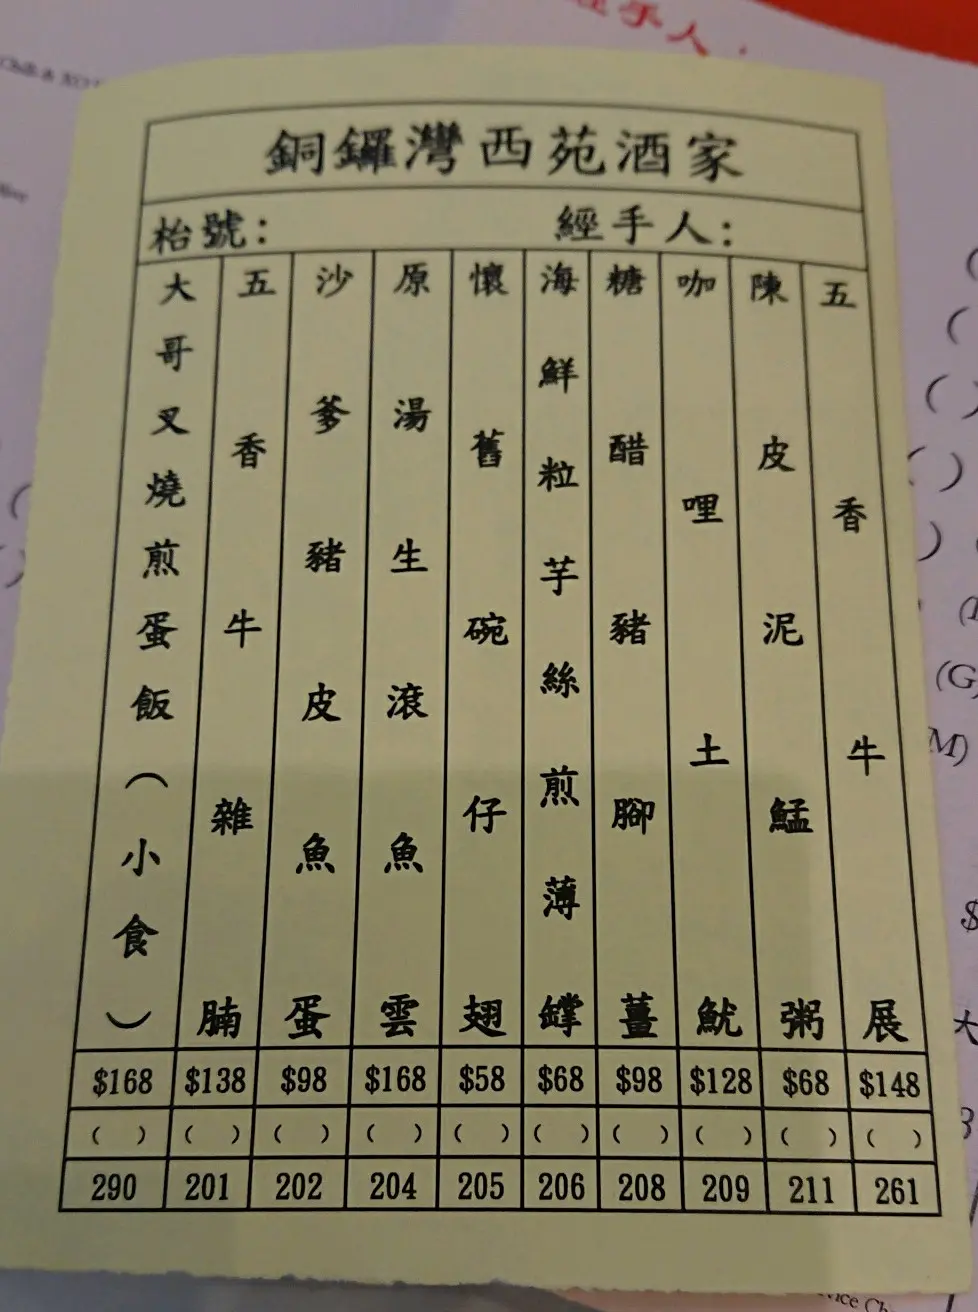 銅鑼灣西苑酒家
枱號：
經手人：
五香牛展
陳皮泥鯭粥
咖哩土魷
糖醋豬腳薑
海鮮粒芋絲煎薄罉
懷舊碗仔翅
原湯生滾魚雲
沙爹豬皮魚蛋
五香牛雜腩
大哥叉燒煎蛋飯（小食）
$168 $138 $98 $168 $58 $68 $98 $128 $68 $148
( ) ( ) ( ) ( ) ( ) ( ) ( ) ( ) ( ) ( )
290 201 202 204 205 206 208 209 211 261
手人：
(G)